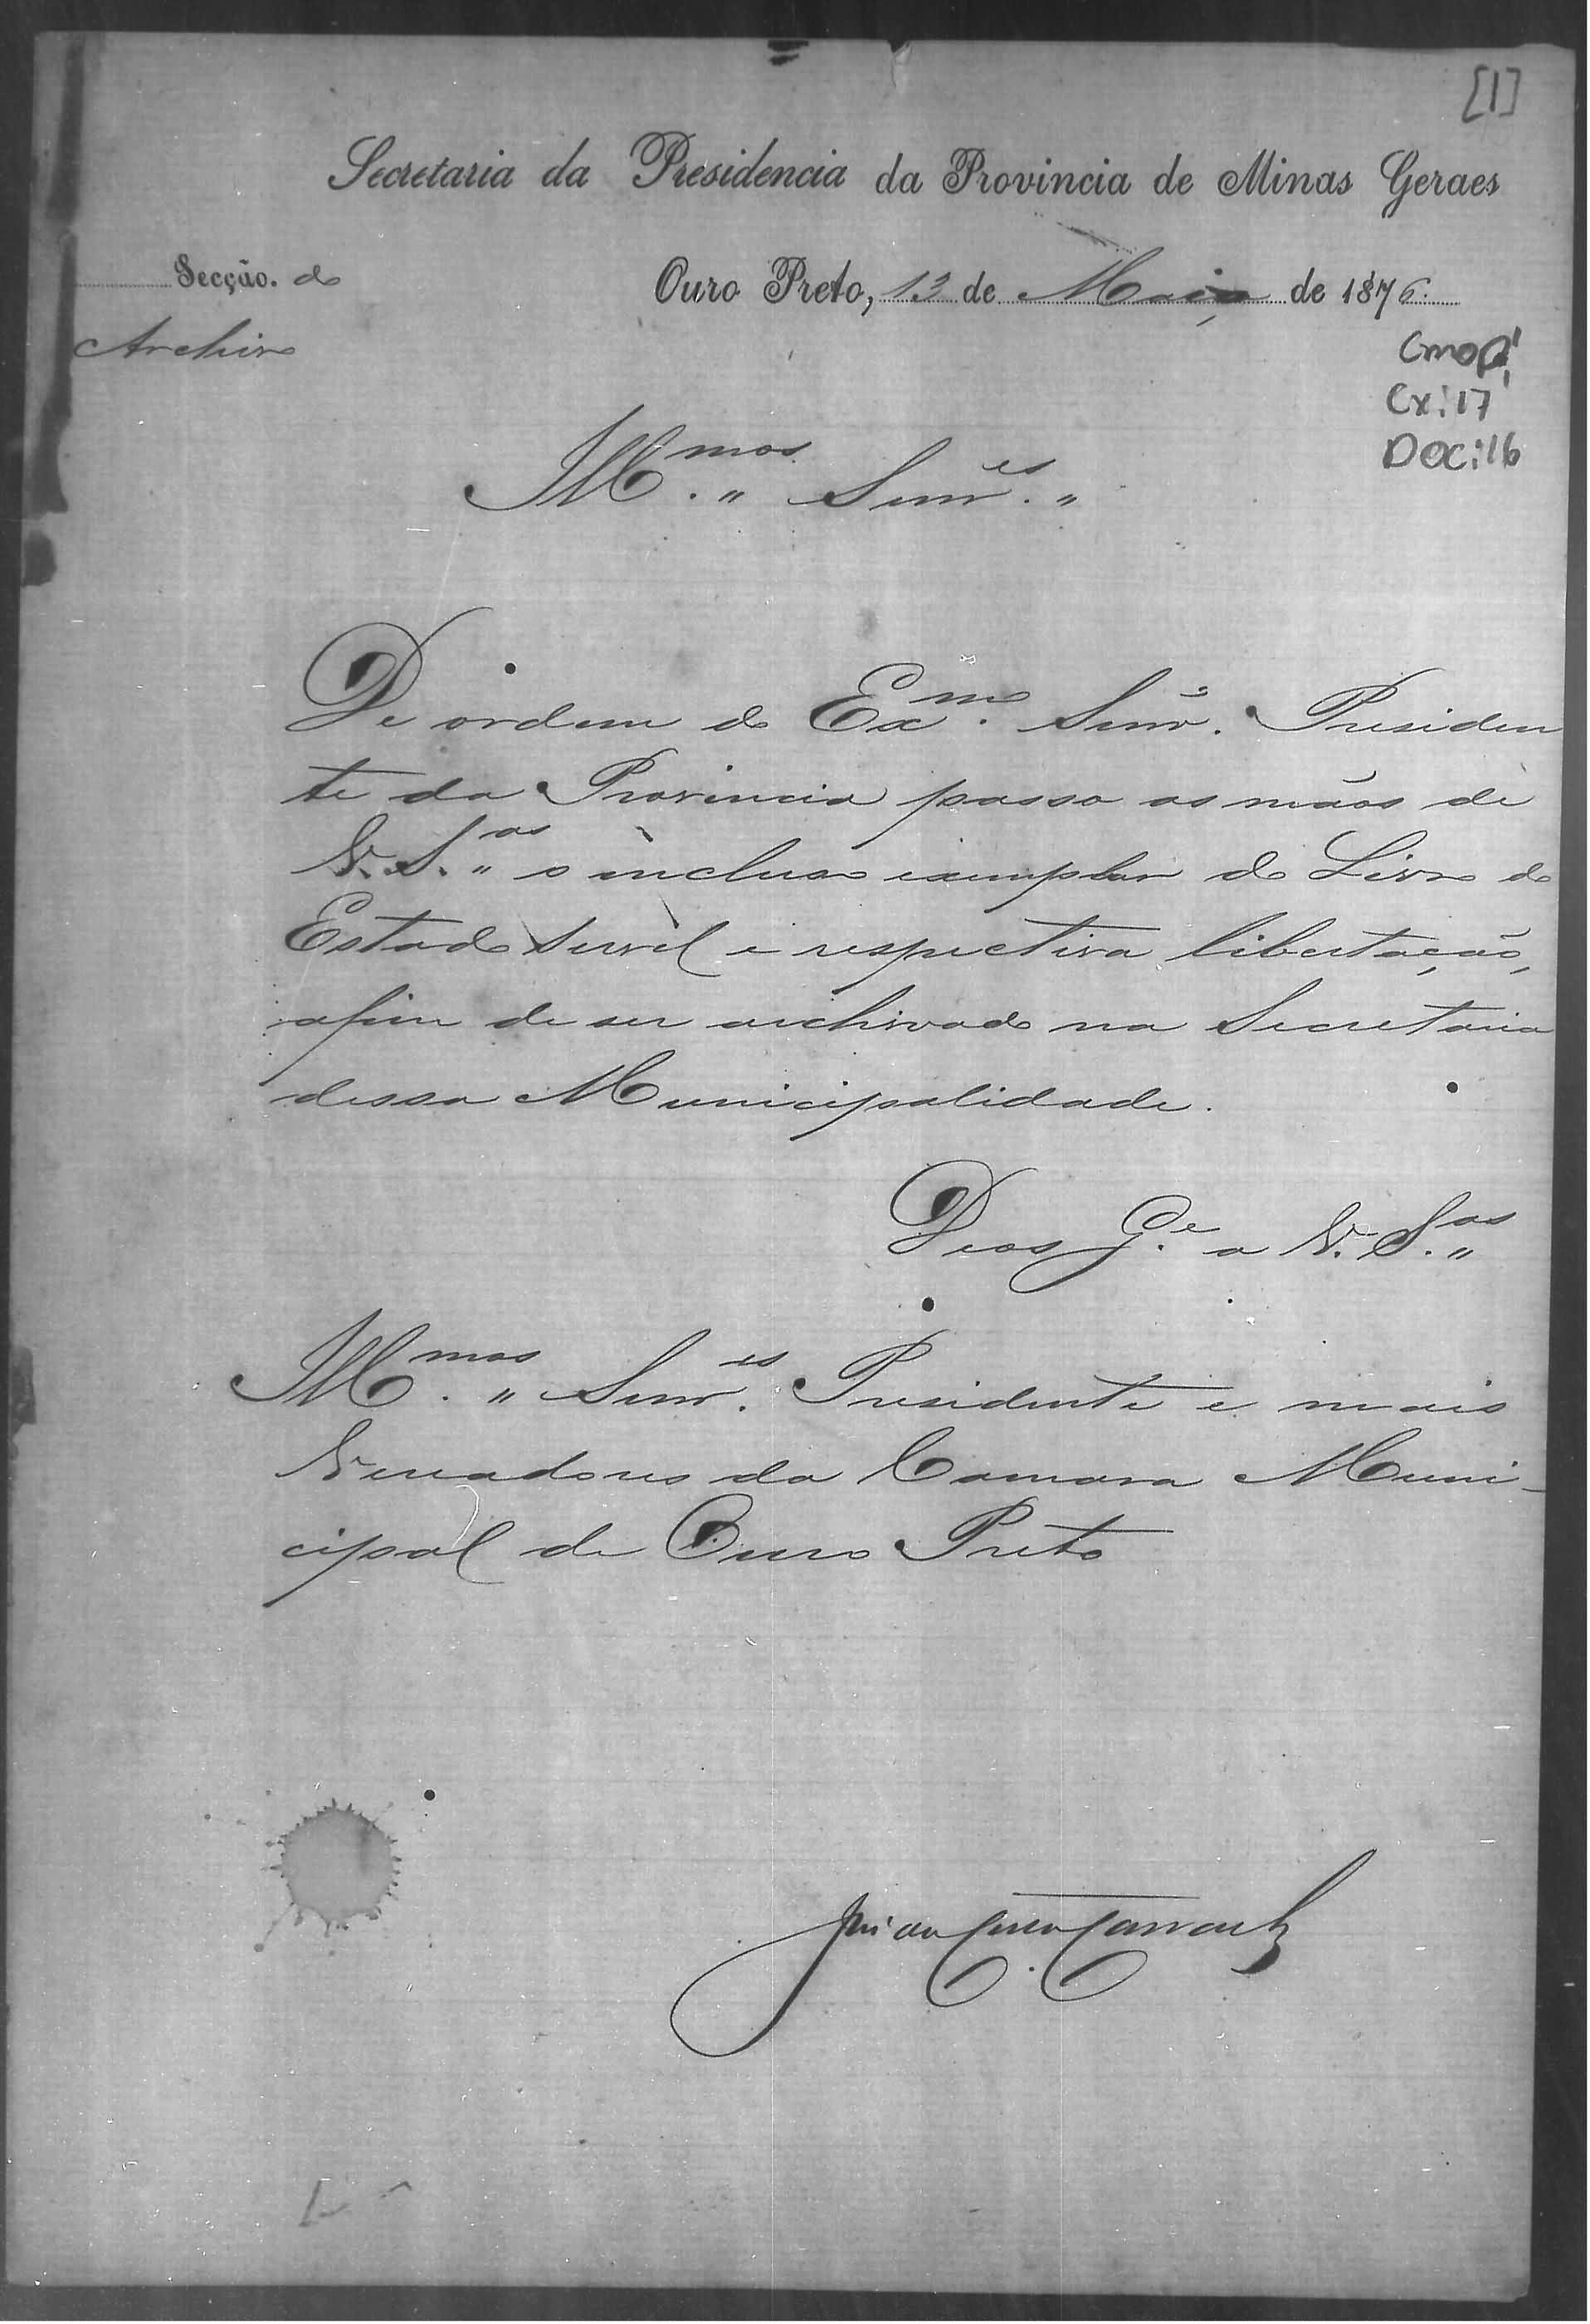 [1]
Secretaria da Presidencia da Provincia de Minas Geraes
Secção. do
Archivo
Ouro Preto, 13 de Maio de 1876.
CMOP
Cx: 17
DOC: 16
Illmos. Senres.
De ordem do Exmo. Senr. Presiden
te da Provincia passo as mãos de
V. Sas. o incluso exemplar do Livro do
Estado servil e respectiva libertação,
afim de ser archivado na Secretaria
dessa Municipalidade.
Deos Ge. a V. Sas.
Illmos. Senres. Presidente e mais
Vereadores da Camara Muni-
cipal de Ouro Preto